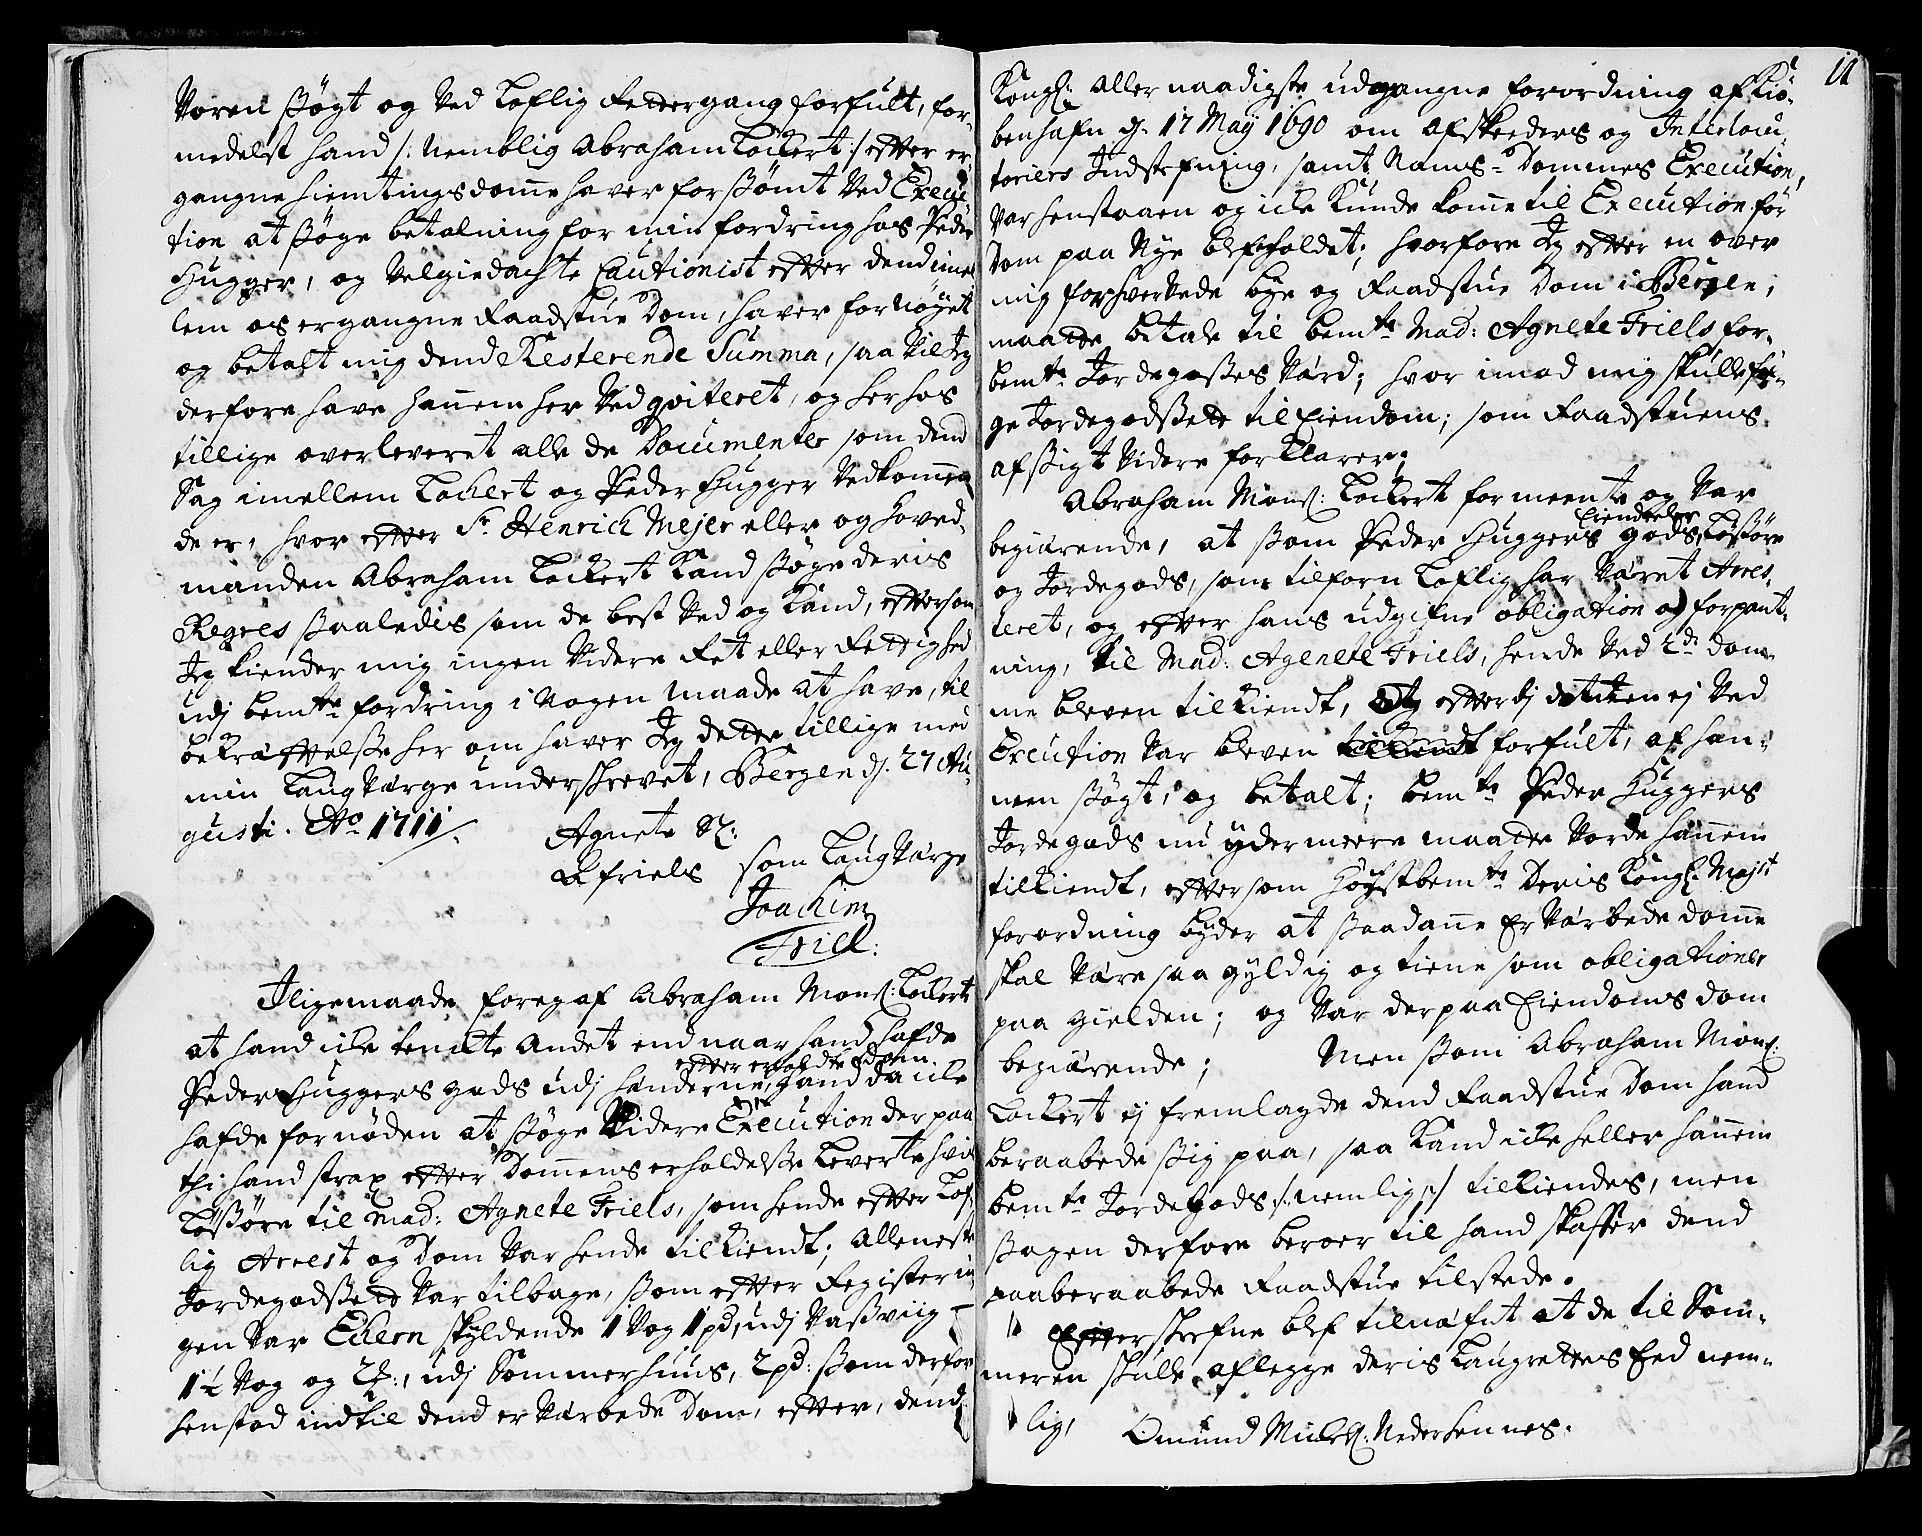 Voren ßøgt og Ved Loflig Rettergang forfult, for-
medelst hand /: nemblig Abraham Lockert :/ efter er-
gangne hiemtings domme haver forßømt Ved Execu-
tion at ßøge betalning for min fordring hos Peder
Hugger, og Velgiedachte Cautionist efter dend imel-
lem os ergangne Raadstue Dom, haver fornøyet
og betalt mig dend Resterende Summa, saa Vil Jeg
derfore have hannem her Ved qviteret, og herhos
tillige overleveret alle de Documenter som dend
Sag imellem Lockert og Peder Hugger Vedkommen-
de er, hvor efter Sr. Henrich Mejer eller og hoved-
manden Abraham Lockert Kand ßøge deris
Regres ßaaledis som de best Ved og Kand, eftersom
Jeg kiender mig ingen Videre Ret eller Rettighed
udj bemte fordring i Nogen maade at have, til
bekræfftelße her om haver Jeg dette tillige med
min Laug Værge underskrevet, Bergen dj. 27 Au-
gusti. Ao 1711.
Agnete Sl:
Friels som Laug Værge
Joachim
Friel:
Jligemaade foregaf Abraham Monß: Lockert
at hand icke tenckte Andet end naar hand hafde
efter erholdte dom
Peder Huggers gods udj Hænderne, hand da icke
hafde fornøden at ßøge Videre Execution der paa
thi hand strax efter Dommens erholdelße Leverte hvis
Løßøre til Mad: Agnete Friels, som hende efter Lof-
lig Arrest og Dom Var hende tilkiendt; Alleneste
Jordegodßett Var tilbage, ßom efter Registerin-
gen Var Echern skyldende 1 Vog 1 pd, udj Vaßviig
1½ Vog og 2 ₰:, udj Sommerhuus, 2 pd: ßom derfor
henstod indtil dend er Værbede Dom, efter, dend
11
Kongl: Aller naadigste udgangne forordning af Kiø-
benhafn d. 17 Maÿ 1690 om Afskeeders og Interlocu-
toriers Indstefning, samt Nams-Dommes Execution,
Var henstaaen og icke Kunde komme til Execution før
Dom paa Nye blef holdet; hvorfore Jeg efter en over
mig forhvervede bye og Raadstue Dom i Bergen,
maatte betale til bemte Mad: Agnete Friels for-
bemte Jordegoßes Værd; hvor imod mig skulle føl-
ge Jordegodßett til Eiendom; som Raadstuens
afßigt Videre forklarer;
Abraham Monß: Lockert formeente og Var
Eiendeeler
begiærende, at ßom Peder Huggers gods, Løßøre
og Jordegods, som tilforn Loflig har Været Arres-
teret, og efter hans udgifne obligation og forpant-
ning, til Mad: Agenete Friels, hende Ved 2de dom-
me bleven tilkiendt, Og efterdj dette ej Ved
Execution Var bleven forfult, af han-
nem ßøgt, og betalt; bemte Peder Huggers
Jordegods nu ydermeere maatte Vorde hannem
tilkiendt, eftersom Høystbemte Deris Kongl: Majts
forordning byder at ßaadanne Er Værbede domme
skal Være saa gyldig og tiene som obligationer
paa gielden; og Var derpaa Eiendoms dom
begiærende; Men ßom Abraham Monß:
Lockert ej fremlagde dend Raadstue Dom hand
beraabede ßig paa, saa Kand icke heller hannem
bemte Jordegods /: nemlig :/ tilkiendes, men
ßagen derfore beroer til hand skaffer dend
paaberaabede Raadstue tilstede.
Efterskrefne blef tilnæfnt at de til Som-
meren skulle aflegge deris Laugrettes Eed nem-
lig, Omund Mickelß: Nederhennes.